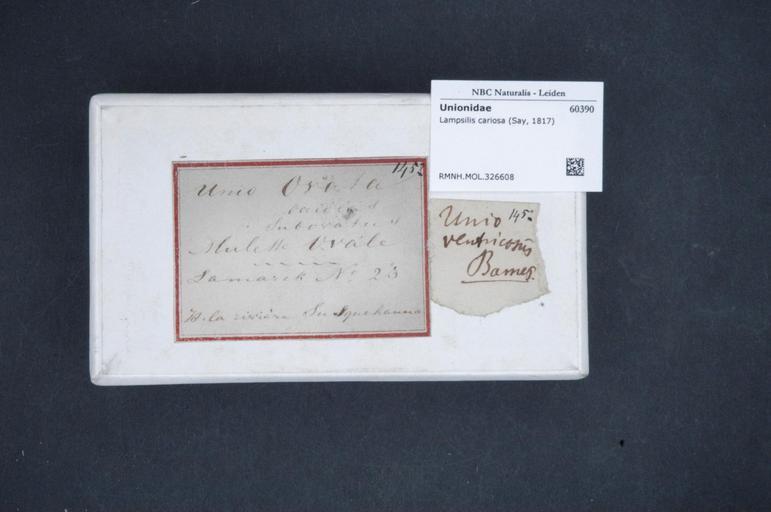 NBC Naturalis - Leiden
Unionidae 60390
Lampsilis cariosa (Say, 1817)
RMNH.MOL.326608
1452
Unio Ovata
Subovatus
Mulette Ovale
Lamarck No 23
H. la rivière Susquehanna
Unio 145
ventricosus
Barnes.